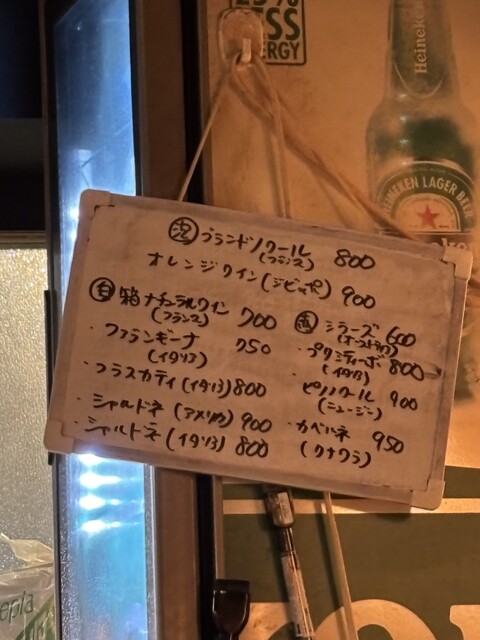 LESS
ERGY
Heineken
HEINEKEN LAGER BEER
泡 ブランドノワール 800
(フランス)
オレンジワイン(ジビッボ) 900
白 箱ナチュラルワイン 700
(フランス)
・ファランギーナ 750
(イタリア)
・フラスカティ(イタリア) 800
・シャルドネ(アメリカ) 900
・シャルドネ(イタリア) 800
赤 シラーズ 600
(オーストラリア)
・プリミティーボ 800
(イタリア)
ピノノワール 900
(ニュージー)
・カベルネ 950
(クナワラ)
epla